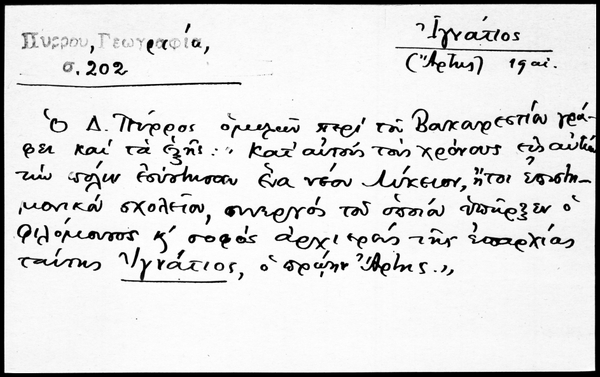 Πύρρου, Γεωγραφία,
σ. 202
Ἰγνάτιος
(Ἄρτης) 19 αἰ.
Ὁ Δ. Πύρρος ὁμιλῶν περὶ τοῦ Βουκουρεστίου γρά-
φει καὶ τὰ ἑξῆς: „ Κατ' αὐτοὺς τοὺς χρόνους εἰς αὐτὴν
τὴν πόλιν ἐσύστησαν ἕνα νέον Λύκειον, ἤτοι ἐπιστη-
μονικὸ σχολεῖον, συνεργὸς τοῦ ὁποίου ὑπῆρξεν ὁ
φιλόμουσος κ' σοφὸς ἀρχιερεὺς τῆς ἐπαρχίας
ταύτης Ἰγνάτιος, ὁ πρώην Ἄρτης.„